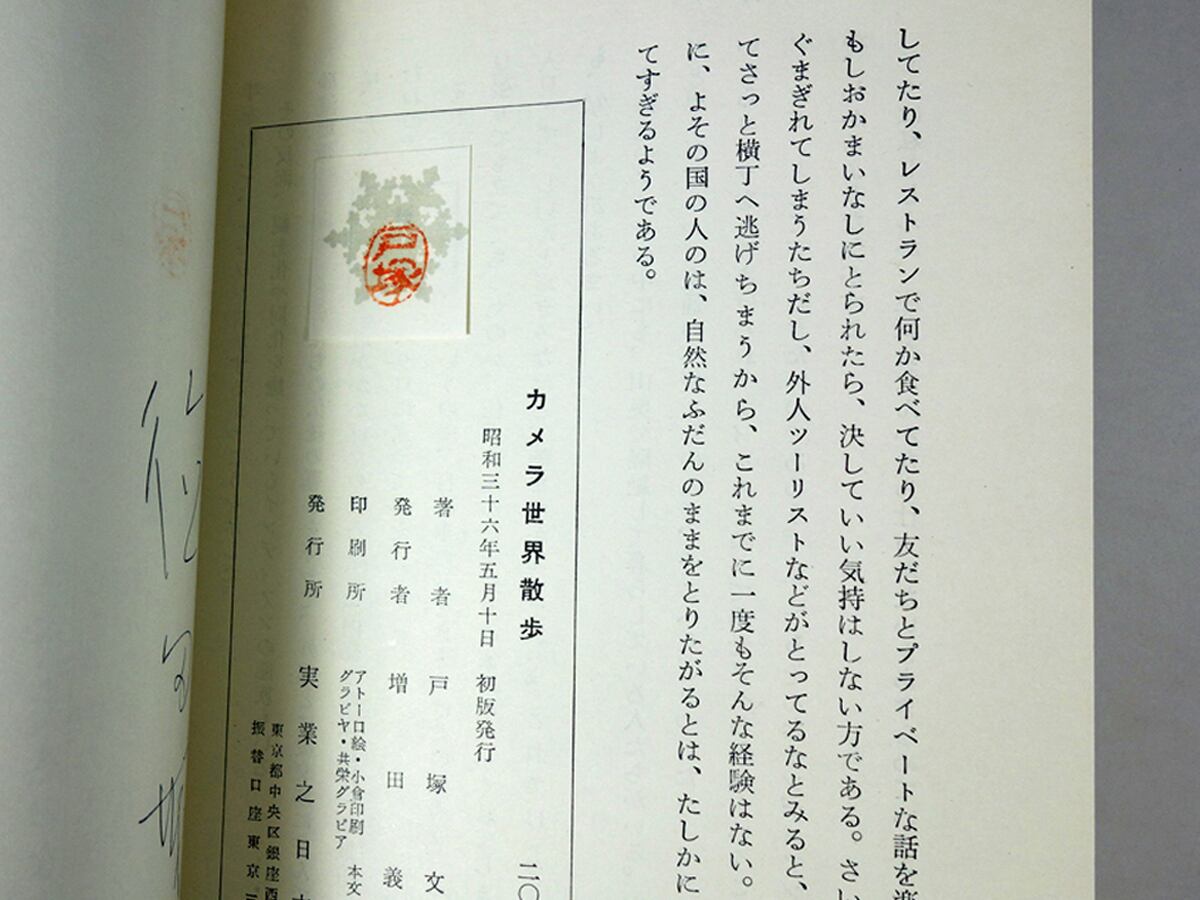 してたり、レストランで何か食べてたり、友だちとプライベートな話を
もしおかまいなしにとられたら、決していい気持はしない方である。さい
ぐまぎれてしまうたちだし、外人ツーリストなどがとってるなとみると、
てさっと横丁へ逃げちまうから、これまでに一度もそんな経験はない。
に、よその国の人のは、自然なふだんのままをとりたがるとは、たしかに
てすぎるようである。
戸塚
カメラ世界散歩
二〇
昭和三十六年五月十日 初版発行
著者 戸塚文
発行者 増田義
印刷所 アトー口絵・小倉印刷 本文
グラビヤ・共栄グラビア
発行所 実業之日本
東京都中央区銀座西
振替口座東京